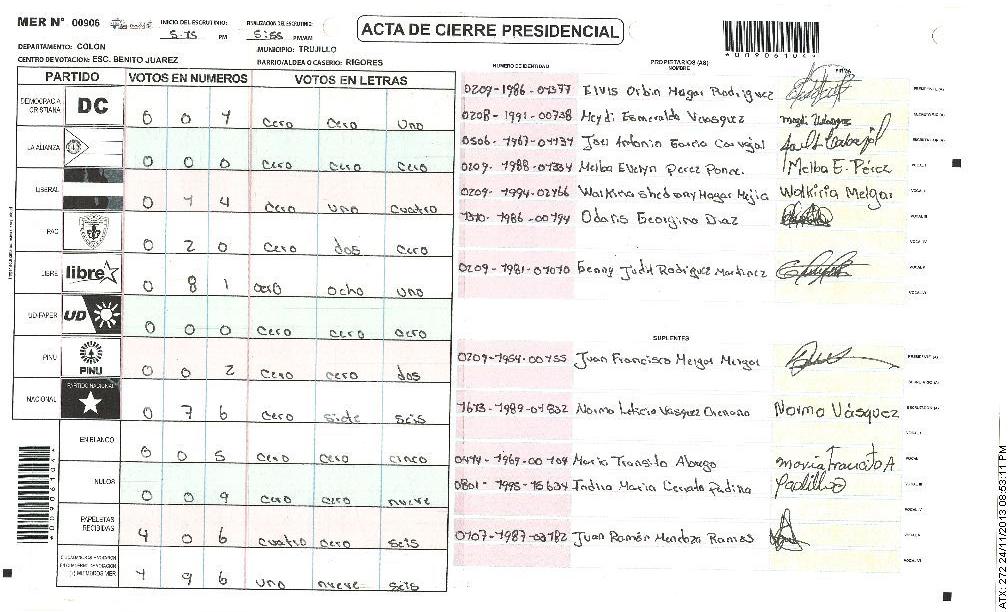 MER N° 00906
INICIO DEL ESCRUTINIO: 5:15 PM
FINALIZACION DEL ESCRUTINIO: 5:55 PM/AM
ACTA DE CIERRE PRESIDENCIAL
*009061041*
DEPARTAMENTO: COLON
MUNICIPIO: TRUJILLO
CENTRO DE VOTACION: ESC. BENITO JUAREZ
BARRIO/ALDEA O CASERIO: RIGORES
PARTIDO VOTOS EN NUMEROS VOTOS EN LETRAS
DEMOCRACIA CRISTIANA DC 0 0 1 cero cero uno
LA ALIANZA 0 0 0 cero cero cero
LIBERAL 0 1 4 cero uno cuatro
PAC 0 2 0 cero dos cero
LIBRE libre 0 8 1 cero ocho uno
UD FAPER UD 0 0 0 cero cero cero
PINU PINU 0 0 2 cero cero dos
NACIONAL PARTIDO NACIONAL 0 7 6 cero siete seis
EN BLANCO 0 0 5 cero cero cinco
NULOS 0 0 9 cero cero nueve
PAPELETAS RECIBIDAS 4 0 6 cuatro cero seis
1 9 6 uno nueve seis
NUMERO DE IDENTIDAD
PROPIETARIOS (AS)
NOMBRE
FIRMA
0209-1986-01377 Elvis Orbin Melgar Rodriguez
0208-1991-00738 Meydi Esmeralda Vasquez
0506-1967-01737 Joel Antonio Garcia Carvajal
0209-1988-01334 Melba Evelyn Perez Ponce. Melba E. Pérez
0209-1994-02766 Walkiria Melgar
1310-1986-00194 Odaris Georgina Diaz
0209-1981-01070 Genny Judit Rodriguez Martinez
SUPLENTES
0209-1954-00155 Juan Francisco Melgar Melgar
1613-1989-01832 Norma Leticia Vasquez Norma Vásquez
Maria Transito maria Transito A
0801-1995-15634 Indira Maria Cerrato Padilla Padilla
0107-1987-03182 Juan Ramón Mendoza Ramos
*009061041*
ATX: 272 24/11/2013 08:53:11 PM